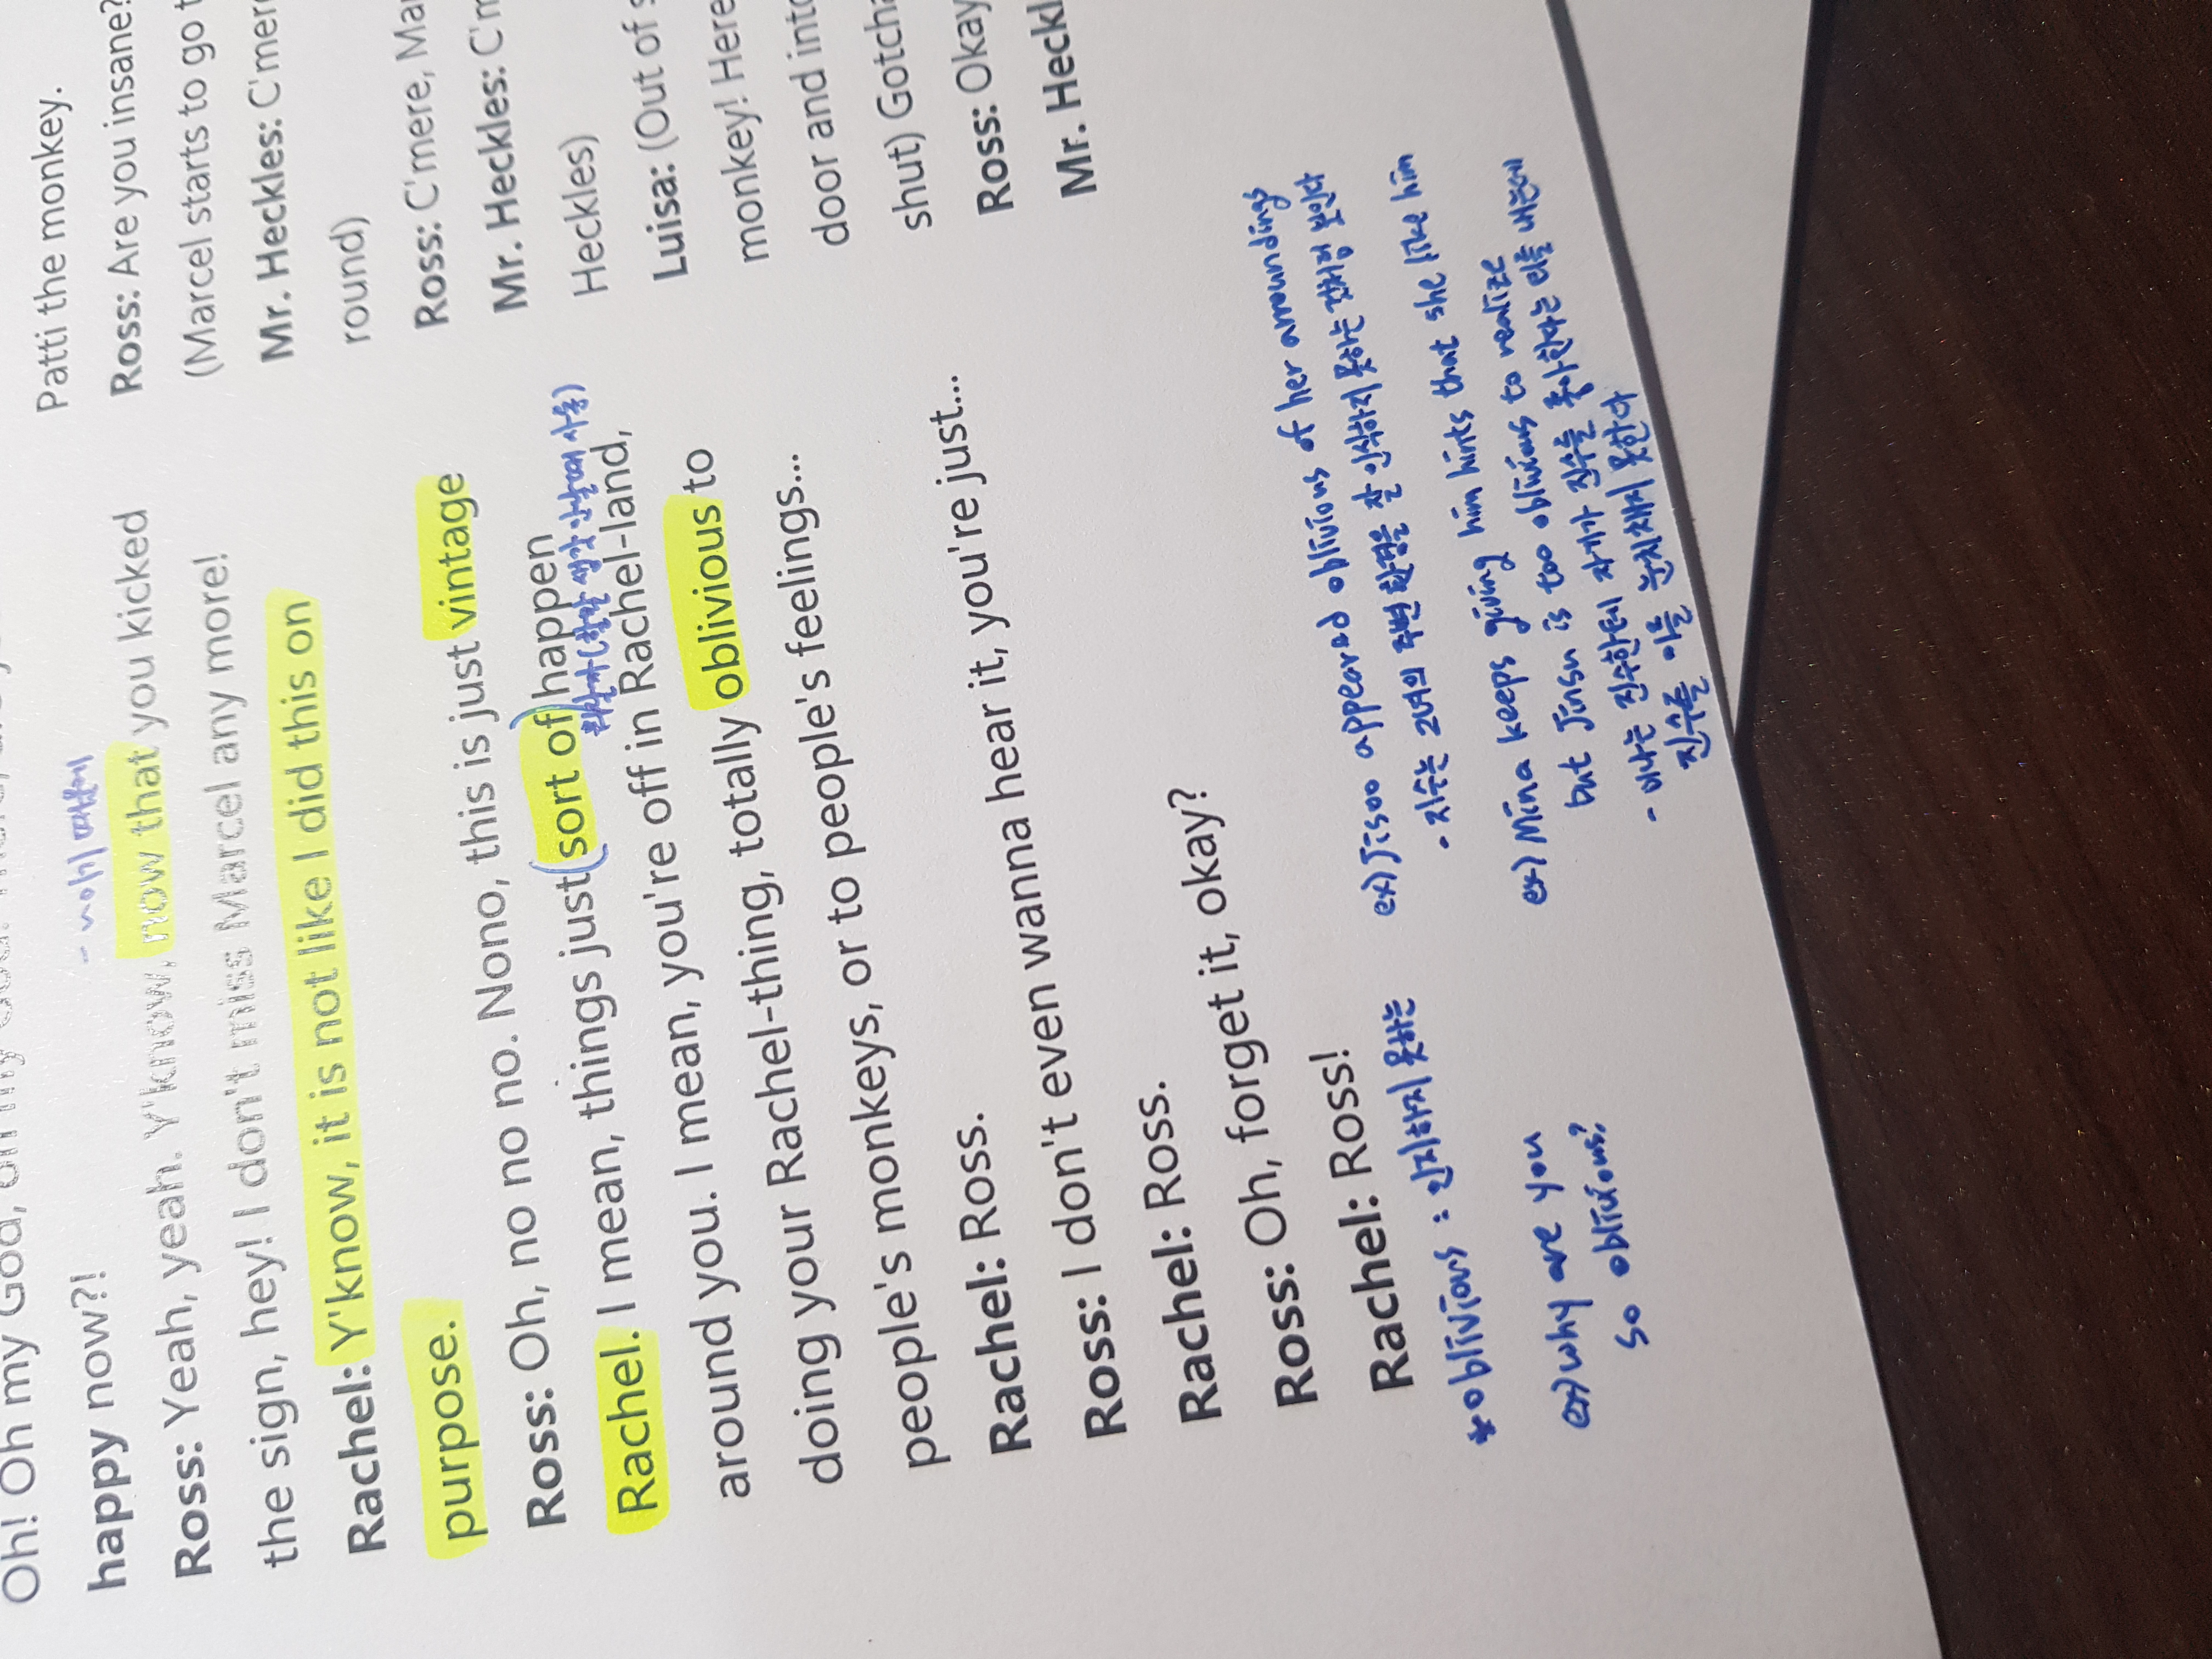 Oh! Oh my God,
happy now?!
- ~이기 때문에
Ross: Yeah, yeah. Y'know, now that you kicked
the sign, hey! I don't miss Marcel any more!
Rachel: Y'know, it is not like I did this on
purpose.
Ross: Oh, no no no. Nono, this is just vintage
Rachel. I mean, things just (sort of) happen
around you. I mean, you're off in Rachel-land,
doing your Rachel-thing, totally oblivious to
people's monkeys, or to people's feelings...
Rachel: Ross.
Ross: I don't even wanna hear it, you're just...
Rachel: Ross.
Ross: Oh, forget it, okay?
Rachel: Ross!
*oblivious : 인지하지 못하는
ex) why are you
so oblivious?
ex) Jisoo appeared oblivious of her arounding
- 지수는 그녀의 주변 환경을 잘 인식하지 못하는 것처럼 보인다
ex) Mina keeps giving him hints that she like him
but Jinsu is too oblivious to realize
- 미나는 진수한테 자기가 진수를 좋아한다는 티를 내는데
진수를 이를 눈치채지 못한다
Patti the monkey.
Ross: Are you insane?
(Marcel starts to go
Mr. Heckles: C'mere
round)
Ross: C'mere, Mar
Mr. Heckles: C'm
Heckles)
Luisa: (Out of
monkey! Here
door and into
shut) Gotcha
Ross: Okay
Mr. Heckl